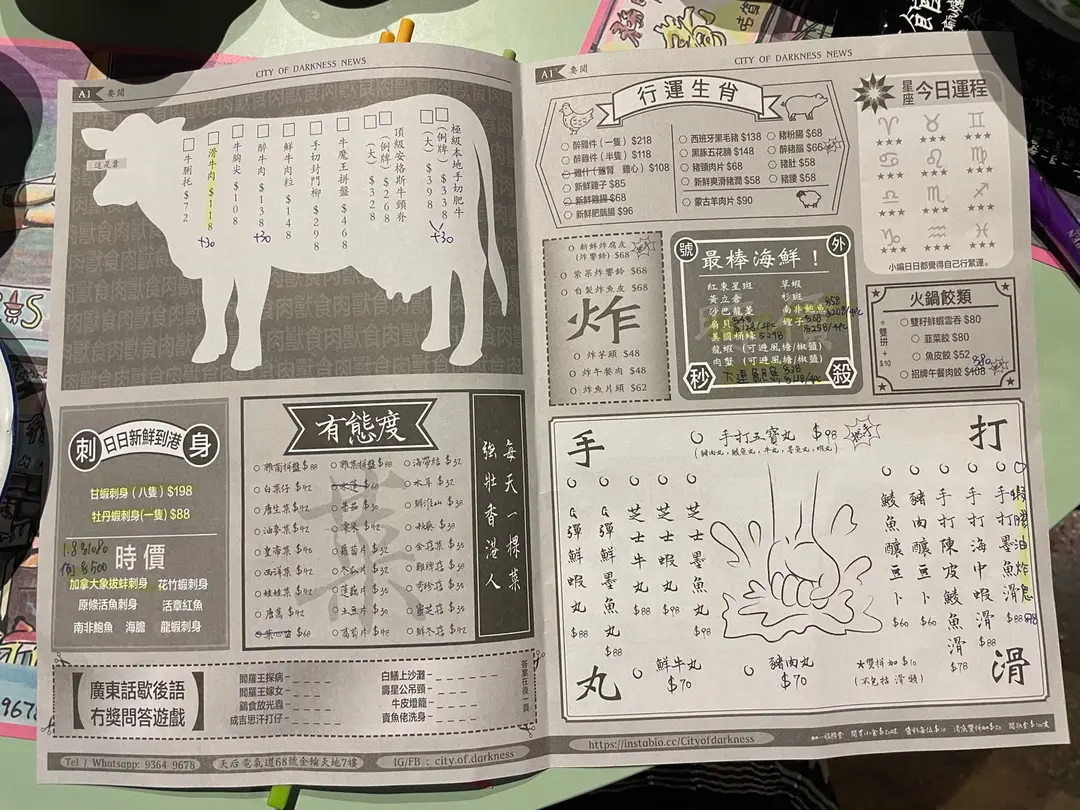 CITY OF DARKNESS NEWS
A1 要聞
這是靠
極級本地手切肥牛
(例牌) $338
(大) $398
+30
頂級安格斯牛頸脊
(例牌) $268
(大) $328
牛魔王拼盤 $468
手切封門柳 $298
鮮牛肉粒 $148
醉牛肉 $138
+30
牛胸尖 $108
滑牛肉 $118
+30
牛脷托 $72
刺 日日新鮮到港 身
甘蝦刺身 (八隻) $198
牡丹蝦刺身(一隻) $88
時價
加拿大象拔蚌刺身 花竹蝦刺身
原條活魚刺身 活章紅魚
南非鮑魚 海膽 龍蝦刺身
有態度
雜菌拼盤 $88
白菜仔 $42
唐生菜 $42
油麥菜 $42
皇帝菜 $45
西洋菜 $42
娃娃菜 $42
唐蒿 $42
雜菜拼盤 $88
水蓮 $68
番茄 $30
粟米 $42
蘿蔔片 $32
冬瓜片 $32
蓮藕片 $35
土豆片 $30
萵筍片 $48
海帶結 $32
水耳 $32
鮮淮山 $38
秋葵 $38
金菇菜 $35
雞脾菇 $38
秀珍菇 $35
靈芝菇 $35
鮮冬菇 $42
菜
每天一棵菜
強壯香港人
廣東話歇後語
冇獎問答遊戲
閻羅王探病
閻羅王嫁女
鷄食放光蟲
成吉思汗打仔
白鱔上沙灘
壽星公吊頸
牛皮燈籠
賣魚佬洗身
答案在後一頁
Tel / Whatsapp: 9364 9678 天后電氣道68號金輪天地7樓 IG/FB : city.of.darkness
CITY OF DARKNESS NEWS
A1 要聞
行運生肖
醉雞件 (一隻) $218
醉雞件 (半隻) $118
新鮮雞子 $85
新鮮雞腸 $68
新鮮肥鵝腸 $96
西班牙黑毛豬 $138
黑豚五花腩 $148
豬頸肉片 $68
新鮮爽滑豬潤 $58
蒙古羊肉片 $90
豬粉腸 $68
醉豬腦 $66
豬肚 $58
豬腰 $58
星座 今日運程
小編日日都覺得自己行緊運。
新鮮炸腐皮
(炸響鈴) $68
紫菜炸響鈴 $68
自製炸魚皮 $68
炸
炸芋頭 $48
炸午餐肉 $48
炸魚片頭 $62
號外
最棒海鮮！
紅東星斑
黃立倉
沙巴龍躉
扇貝
美國桶蠔
草蝦
杉斑
南非鮑魚
蟶子
龍蝦 (可避風塘/椒鹽)
肉蟹 (可避風塘/椒鹽)
秒殺
火鍋餃類
*雙拼 +$10
雙好鮮蝦雲吞 $80
韮菜餃 $80
魚皮餃 $52
招牌午餐肉餃 $108
手打丸滑
手打五寶丸 $98
(豬肉丸，鯪魚丸，牛丸，墨魚丸，蝦丸)
G彈鮮蝦丸 $88
G彈鮮墨魚丸 $88
芝士牛丸 $88
芝士蝦丸 $98
芝士墨魚丸 $98
鯪魚釀豆卜 $60
豬肉釀豆卜 $60
手打陳皮鯪魚滑 $78
手打海中蝦滑 $88
手打墨魚滑 $88
鮮牛丸 $70
豬肉丸 $70
*雙拼加 $10
(不包括滑類)
https://instabio.cc/Cityofdarkness